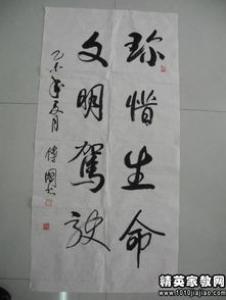 珍惜生命
文明驾驶
乙未年夏月
傅国
精英家教网
www.1010jiajiao.com